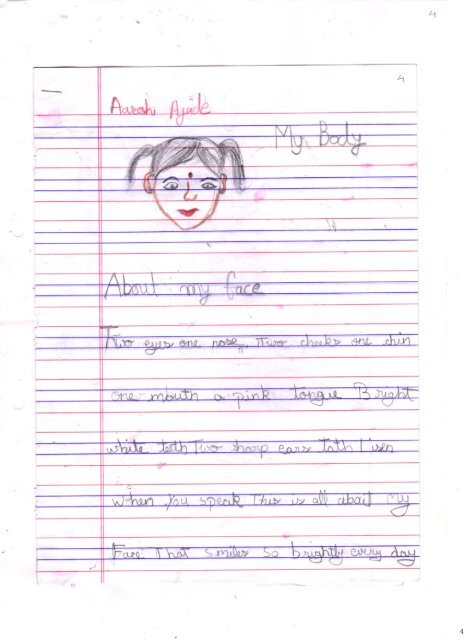 4
4
Aarohi Ajade
My Body
About my face
Two eyes one nose, Two cheeks one chin
one mouth a pink tongue Bright
white teth Two sharp ears Tath lisn
When you speak This is all about my
Face That smiles so brightly every day